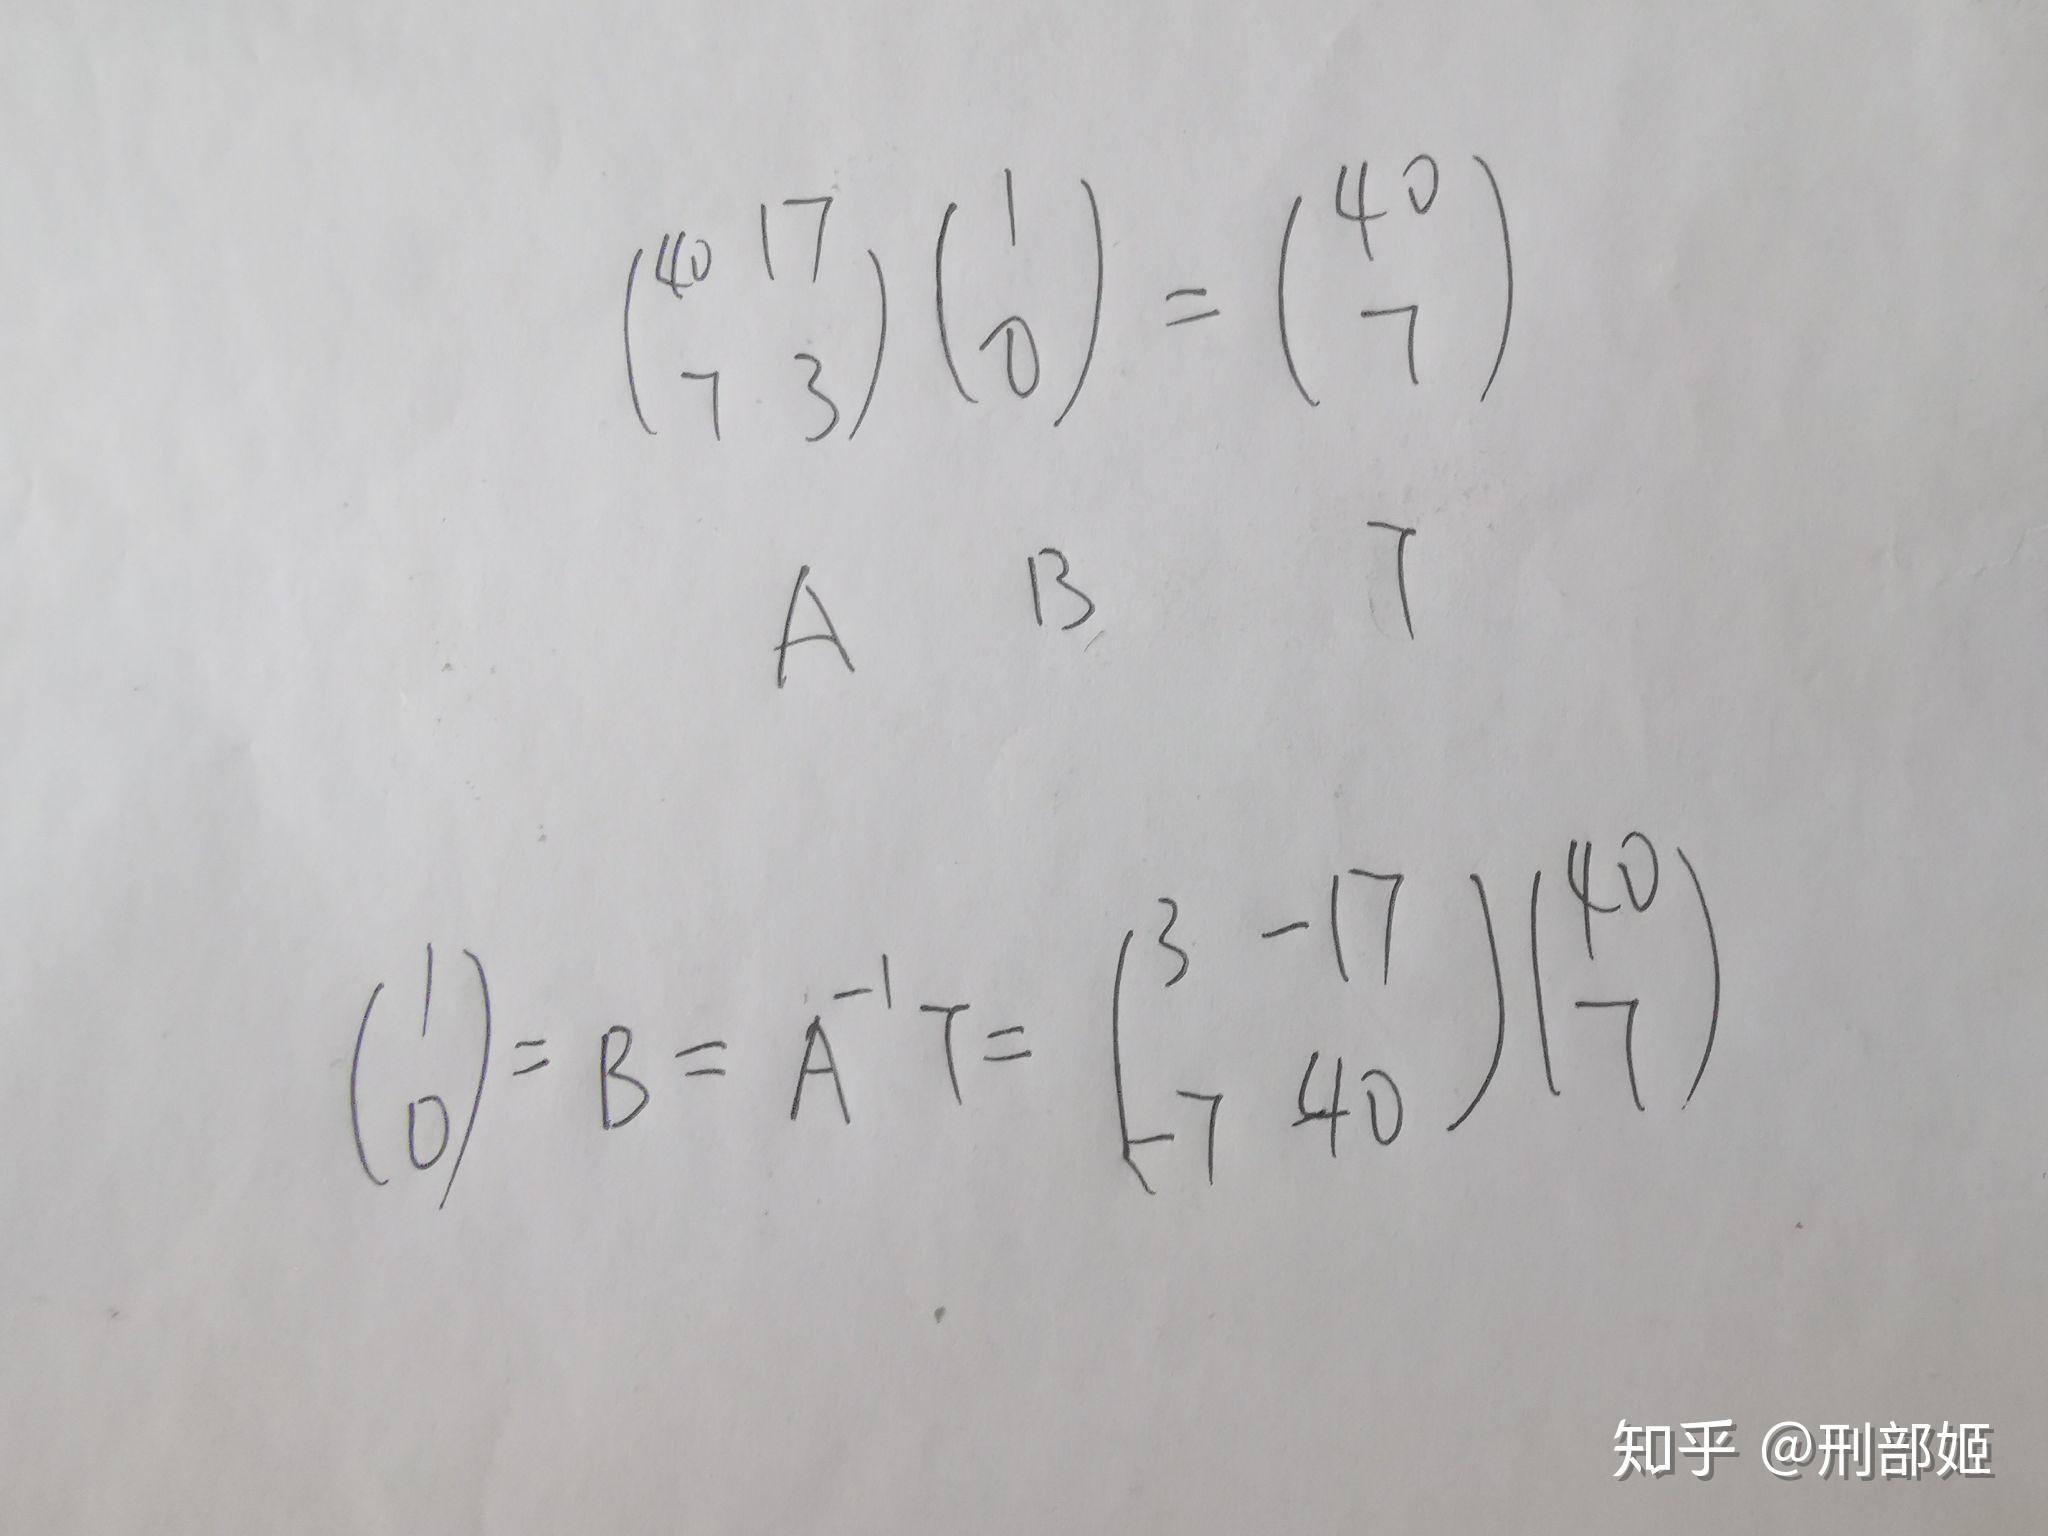 (40 17
7 3) (1
0) = (40
7)
A B T
(1
0) = B = A⁻¹ T = (3 -17
-7 40) (40
7)
知乎 @刑部姬